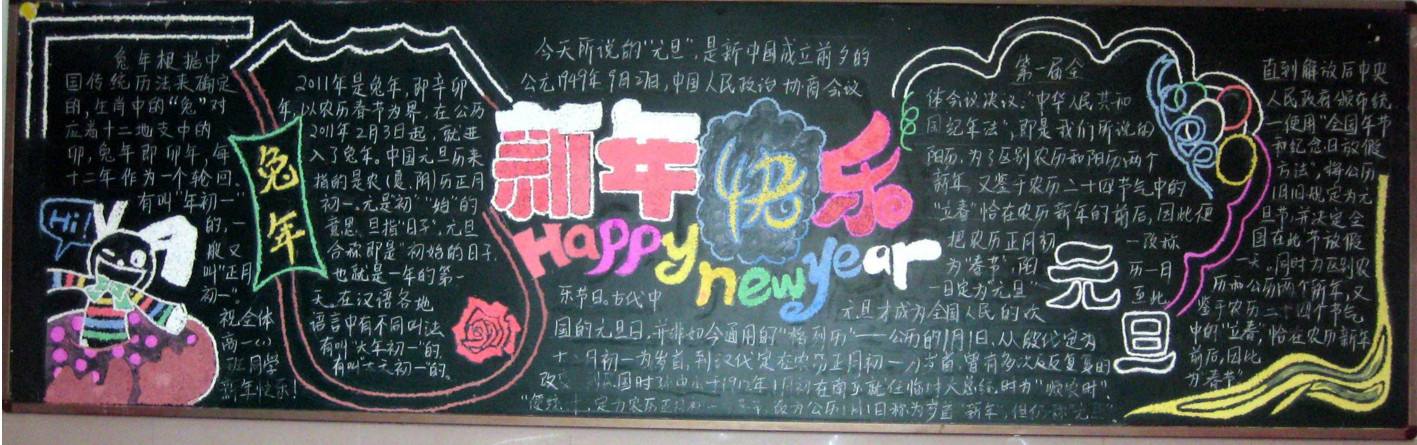 兔年根据中
国传统历法来确定
的,生肖中的“兔”对
应着十二地支中的
卯,兔年即卯年,每
十二年作为一个轮回.
有叫“年初一”
的,一
般又
叫“正月
初一”.
Hi!
祝全体
两一
班同学
新年快乐!
兔年
2011年是兔年,即辛卯
年,以农历春节为界.在公历
2011年2月3日起,就进
入了兔年.中国元旦历来
指的是农(夏.阴)历正月
初一.元是“初”“始”的
意思.旦指“日子”,元旦
合称即是“初始的日子.
也就是一年的第一
天.在汉语各地
语言中有不同叫法
有叫“大年初一”的.
有叫大天初一的.
今天所说的“元旦”,是新中国成立前夕的
公元1949年9月27日,中国人民政治协商会议
新年快乐
Happy
new year
第一届全
体会议决议:“中华人民共和
国纪年法”,即是我们所说的
阳历,为了区别农历和阳历两个
新年,又鉴于农历二十四节气中的
“立春”恰在农历新年的前后,因此便
把农历正月初一改称
为“春节”,阳历一日
一日定为“元旦”至此
元旦才成为全国人民的欢
乐节日.古代中
国的元旦日,并非如今通用的“格列历”——公历的1月1日.从殷代定为
十二月初一为岁首,到汉代定在农历正月初一为岁首,曾有多次反反复复的
元旦
直到解放后中央
人民政府颁布统
一使用“全国年节
和纪念日放假
方法”,将公历
1日1日规定为元
旦节,并决定全
国在此节放假
一天.同时为区别农
历和公历两个新年,又
鉴于农历二十四个节气
中的“立春”恰在农历新年
前后,因此
为“春节”